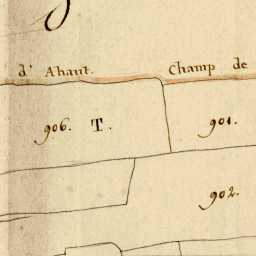 d'Ahaut. Champ de
906. T. 901.
902.